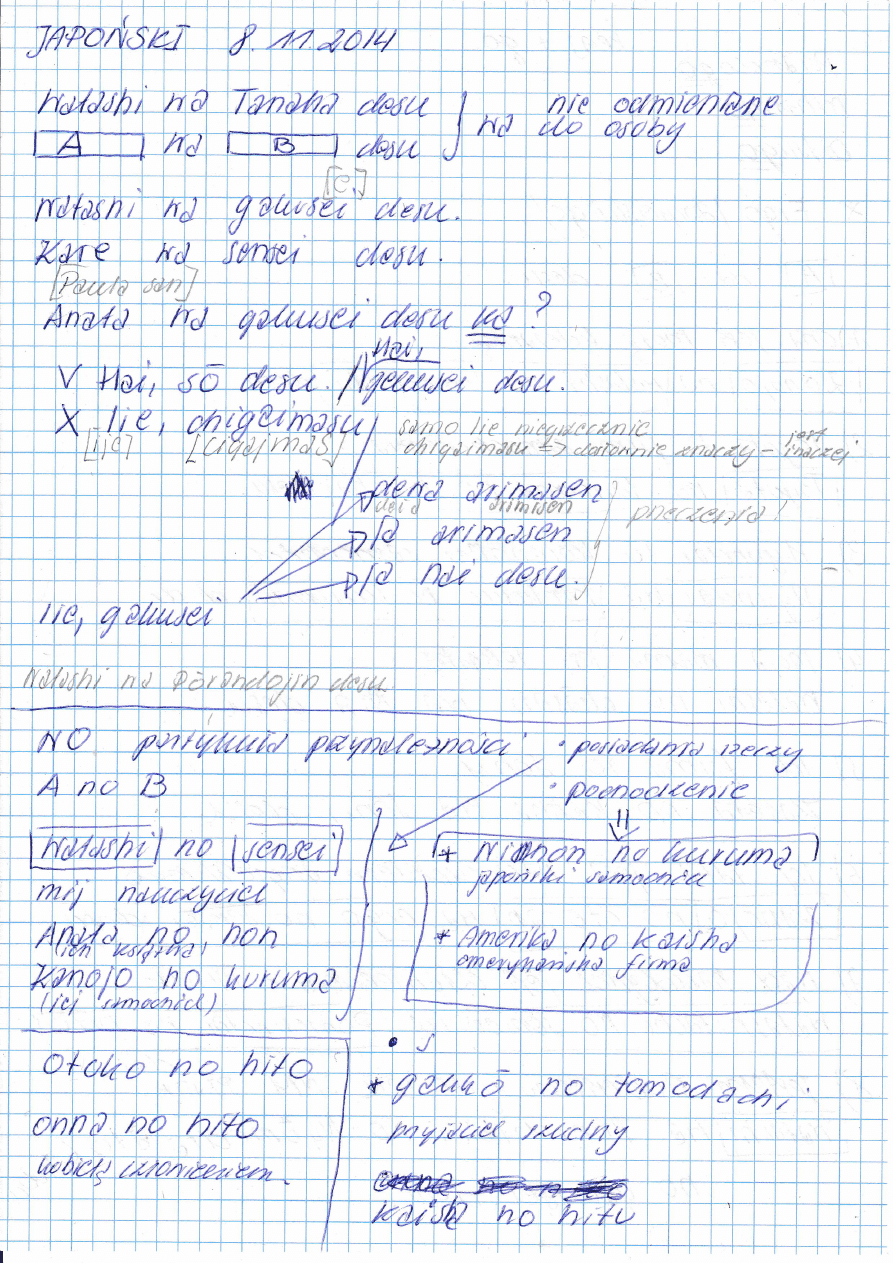 JAPOŃSKI 8.11.2014
Watashi wa Tanaka desu
nie odmieniane
A wa B desu
wa do osoby
Watashi wa gakusei desu.
Kare wa sensei desu.
[Paula san]
Anata wa gakusei desu ka?
V Hai, sō desu. / Hai, gakusei desu.
X Iie, chigaimasu
[ije] [cigajmas]
samo Iie niegrzecznie
chigaimasu => dosłownie znaczy - jest inaczej
dewa arimasen
ja arimasen
ja nai desu.
Iie, gakusei
Watashi wa Pōrandojin desu.
NO partykuła przynależności
• posiadania rzeczy
• pochodzenie
A no B
Watashi no sensei
mój nauczyciel
Anata no hon
Kanojo no kuruma
(jej samochód)
* Nihhon no kuruma
japoński samochód
* Amerika no kaisha
amerykańska firma
Otoko no hito
onna no hito
* gakkō no tomodachi
przyjaciel szkolny
kaisha no hito